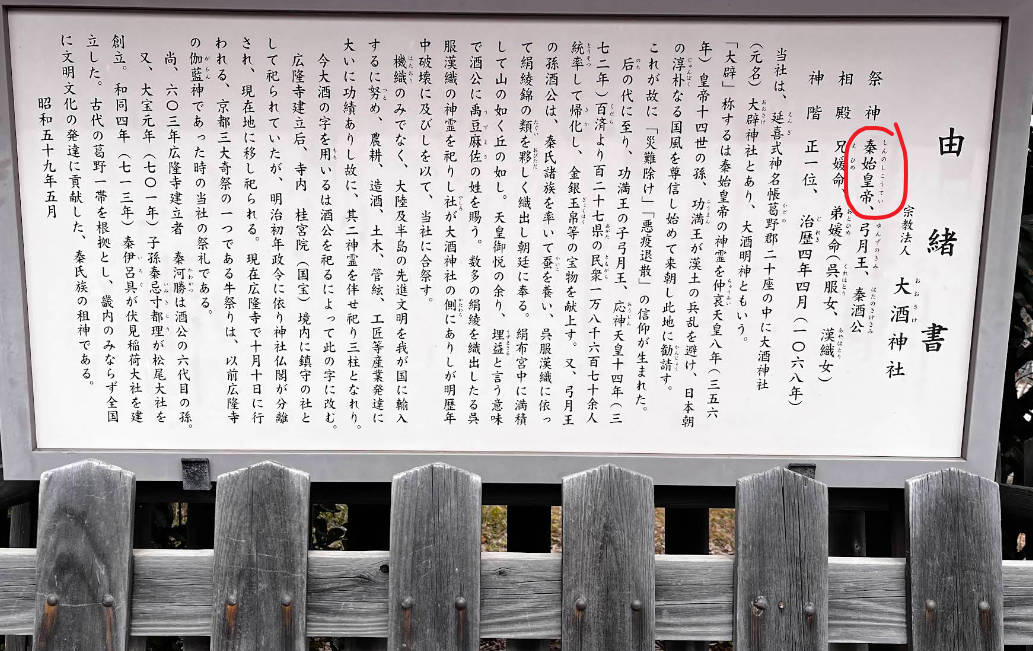 由緒書
宗教法人 大酒神社
祭神 秦始皇帝、弓月王、秦酒公
相殿 兄媛命、弟媛命(呉服女、漢織女)
神階 正一位、治歴四年四月(一〇六八年)
当社は、延喜式神名帳葛野郡二十座の中に大酒神社
(元名)大辟神社とあり、大酒明神ともいう。
「大辟」称するは秦始皇帝の神霊を仲哀天皇八年(三五六
年)皇帝十四世の孫、功満王が漢土の兵乱を避け、日本朝
の淳朴なる国風を尊信し始めて来朝し此地に勧請す。
これが故に「災難除け」「悪疫退散」の信仰が生まれた。
后の代に至り、功満王の子弓月王、応神天皇十四年(三
七二年)百済より百二十七県の民衆一万八千六百七十余人
統率して帰化し、金銀玉帛等の宝物を献上す。又、弓月王
の孫酒公は、秦氏諸族を率いて蚕を養い、呉服漢織に依っ
て絹綾錦の類を夥しく織出し朝廷に奉る。絹布宮中に満積
して山の如く丘の如し。天皇御悦の余り、埋益と言う意味
で酒公に禹豆麻佐の姓を賜う。数多の絹綾を織出したる呉
服漢織の神霊を祀りし社が大酒神社の側にありしが明暦年
中破壊に及びしを以て、当社に合祭す。
機織のみでなく、大陸及半島の先進文明を我が国に輸入
するに努め、農耕、造酒、土木、管絃、工匠等産業発達に
大いに功績ありし故に、其二神霊を伴せ祀り三柱となれり。
今大酒の字を用いるは酒公を祀るによって此の字に改む。
広隆寺建立后、寺内 桂宮院(国宝)境内に鎮守の社と
して祀られていたが、明治初年政令に依り神社仏閣が分離
され、現在地に移し祀られる。現在広隆寺で十月十日に行
われる、京都三大奇祭の一つである牛祭りは、以前広隆寺
の伽藍神であった時の当社の祭礼である。
尚、六〇三年広隆寺建立者 秦河勝は酒公の六代目の孫。
又、大宝元年(七〇一年)子孫秦忌寸都理が松尾大社を
創立。和同四年(七一三年)秦伊呂具が伏見稲荷大社を建
立した。古代の葛野一帯を根拠とし、畿内のみならず全国
に文明文化の発達に貢献した、秦氏族の祖神である。
昭和五十九年五月